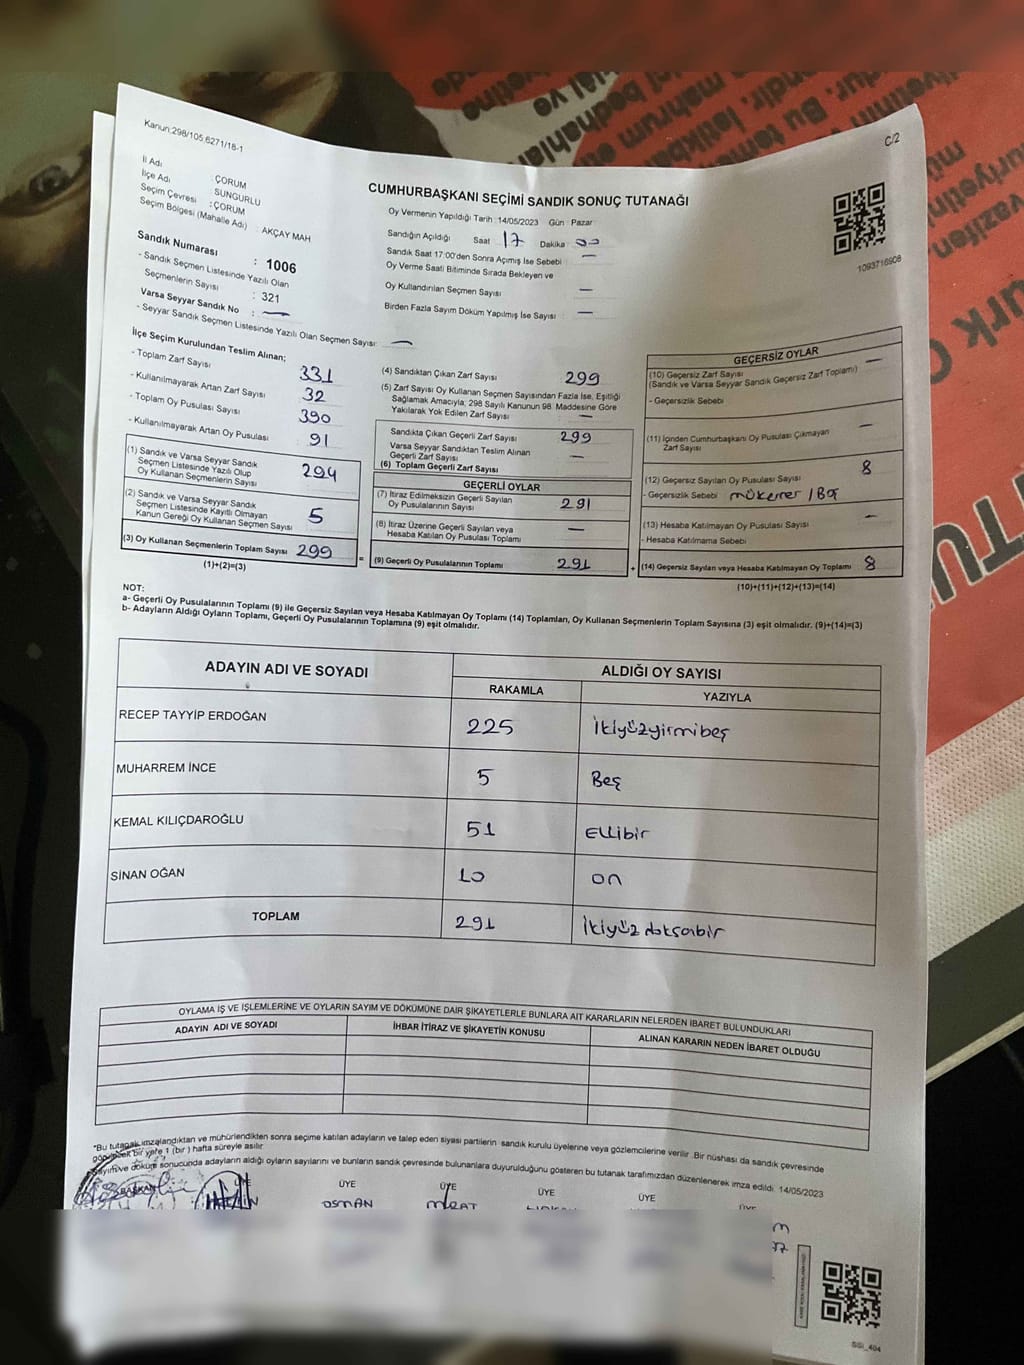 Kanun:298/105,6271/18-1
C/2
İl Adı : ÇORUM
İlçe Adı : SUNGURLU
Seçim Çevresi : ÇORUM
Seçim Bölgesi (Mahalle Adı) : AKÇAY MAH
Sandık Numarası : 1006
- Sandık Seçmen Listesinde Yazılı Olan
Seçmenlerin Sayısı : 321
Varsa Seyyar Sandık No : —
- Seyyar Sandık Seçmen Listesinde Yazılı Olan Seçmen Sayısı: —
CUMHURBAŞKANI SEÇİMİ SANDIK SONUÇ TUTANAĞI
Oy Vermenin Yapıldığı Tarih :14/05/2023 Gün : Pazar
Sandığın Açıldığı Saat 17 Dakika 00
Sandık Saat 17:00'den Sonra Açımış İse Sebebi —
Oy Verme Saati Bitiminde Sırada Bekleyen ve
Oy Kullandırılan Seçmen Sayısı —
Birden Fazla Sayım Döküm Yapılmış İse Sayısı : —
1093716908
İlçe Seçim Kurulundan Teslim Alınan;
- Toplam Zarf Sayısı 331
- Kullanılmayarak Artan Zarf Sayısı 32
- Toplam Oy Pusulası Sayısı 390
- Kullanılmayarak Artan Oy Pusulası 91
(1) Sandık ve Varsa Seyyar Sandık
Seçmen Listesinde Yazılı Olup
Oy Kullanan Seçmenlerin Sayısı 294
(2) Sandık ve Varsa Seyyar Sandık
Seçmen Listesinde Kayıtlı Olmayan
Kanun Gereği Oy Kullanan Seçmen Sayısı 5
(3) Oy Kullanan Seçmenlerin Toplam Sayısı 299
(1)+(2)=(3)
(4) Sandıktan Çıkan Zarf Sayısı 299
(5) Zarf Sayısı Oy Kullanan Seçmen Sayısından Fazla İse, Eşitliği
Sağlamak Amacıyla; 298 Sayılı Kanunun 98. Maddesine Göre
Yakılarak Yok Edilen Zarf Sayısı —
Sandıkta Çıkan Geçerli Zarf Sayısı 299
Varsa Seyyar Sandıktan Teslim Alınan
Geçerli Zarf Sayısı —
(6) Toplam Geçerli Zarf Sayısı
GEÇERLİ OYLAR
(7) İtiraz Edilmeksizin Geçerli Sayılan
Oy Pusulalarının Sayısı 291
(8) İtiraz Üzerine Geçerli Sayılan veya
Hesaba Katılan Oy Pusulası Toplamı —
= (9) Geçerli Oy Pusulalarının Toplamı 291 +
GEÇERSİZ OYLAR
(10) Geçersiz Zarf Sayısı —
(Sandık ve Varsa Seyyar Sandık Geçersiz Zarf Toplamı)
- Geçersizlik Sebebi
(11) İçinden Cumhurbaşkanı Oy Pusulası Çıkmayan
Zarf Sayısı —
(12) Geçersiz Sayılan Oy Pusulası Sayısı 8
- Geçersizlik Sebebi mükerrer / Boş
(13) Hesaba Katılmayan Oy Pusulası Sayısı —
- Hesaba Katılmama Sebebi
(14) Geçersiz Sayılan veya Hesaba Katılmayan Oy Toplamı 8
(10)+(11)+(12)+(13)=(14)
NOT:
a- Geçerli Oy Pusulalarının Toplamı (9) ile Geçersiz Sayılan veya Hesaba Katılmayan Oy Toplamı (14) Toplamları, Oy Kullanan Seçmenlerin Toplam Sayısına (3) eşit olmalıdır. (9)+(14)=(3)
b- Adayların Aldığı Oyların Toplamı, Geçerli Oy Pusulalarının Toplamına (9) eşit olmalıdır.
ADAYIN ADI VE SOYADI ALDIĞI OY SAYISI
RAKAMLA YAZIYLA
RECEP TAYYİP ERDOĞAN 225 İkiyüzyirmibeş
MUHARREM İNCE 5 Beş
KEMAL KILIÇDAROĞLU 51 Ellibir
SİNAN OĞAN 10 on
TOPLAM 291 İkiyüz doksanbir
OYLAMA İŞ VE İŞLEMLERİNE VE OYLARIN SAYIM VE DÖKÜMÜNE DAİR ŞİKAYETLERLE BUNLARA AİT KARARLARIN NELERDEN İBARET BULUNDUKLARI
ADAYIN ADI VE SOYADI İHBAR İTİRAZ VE ŞİKAYETİN KONUSU ALINAN KARARIN NEDEN İBARET OLDUĞU
*Bu tutanak imzalandıktan ve mühürlendikten sonra seçime katılan adayların ve talep eden siyasi partilerin sandık kurulu üyelerine veya gözlemcilerine verilir. Bir nüshası da sandık çevresinde
görülecek bir yere 1 (bir) hafta süreyle asılır.
Sayım ve döküm sonucunda adayların aldığı oyların sayılarını ve bunların sandık çevresinde bulunanlara duyurulduğunu gösteren bu tutanak tarafımızdan düzenlenerek imza edildi. 14/05/2023
BAŞKAN ÜYE ÜYE ÜYE ÜYE ÜYE
OSMAN MURAT
SSI_404